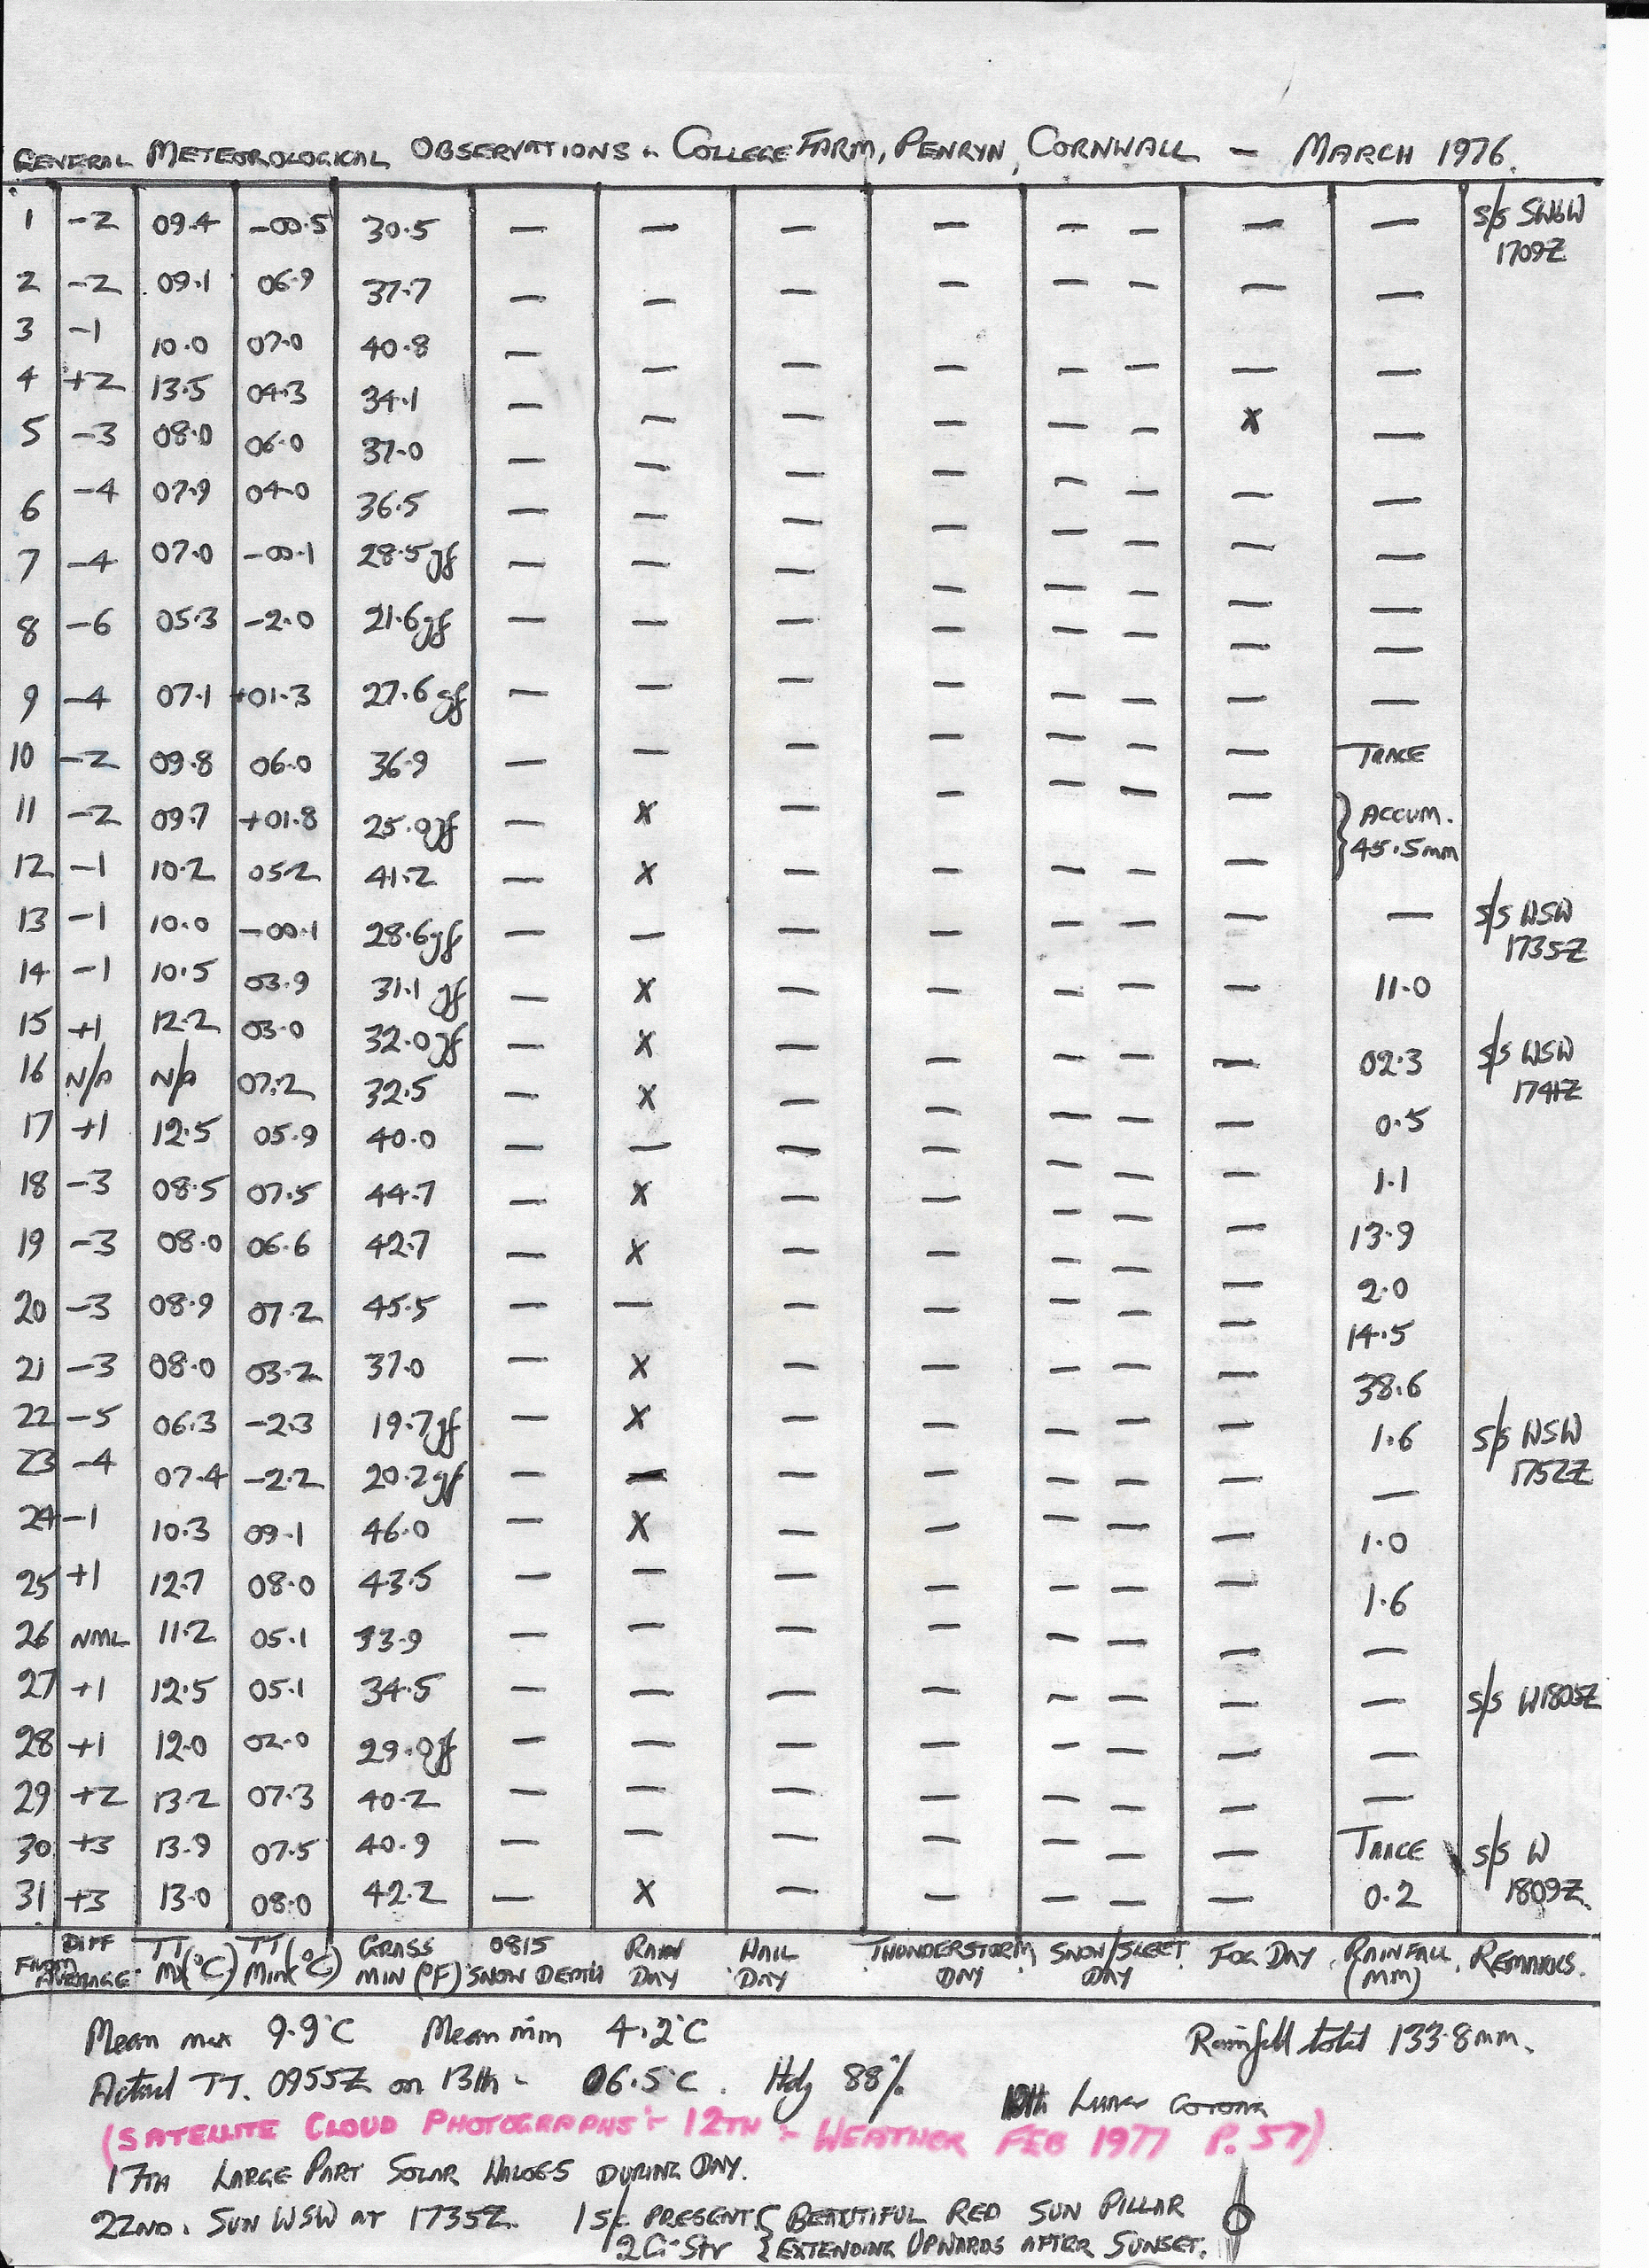 GENERAL METEOROLOGICAL OBSERVATIONS - COLLEGE FARM, PENRYN, CORNWALL - MARCH 1976.
1 -2 09.4 -00.5 30.5 — — — — — — — — S/S SWbW
1709Z
2 -2 09.1 06.9 37.7 — — — — — — — —
3 -1 10.0 07.0 40.8 — — — — — — — —
4 +2 13.5 04.3 34.1 — — — — — — X —
5 -3 08.0 06.0 37.0 — — — — — — — —
6 -4 07.9 04.0 36.5 — — — — — — — —
7 -4 07.0 -00.1 28.5gf — — — — — — — —
8 -6 05.3 -2.0 21.6gf — — — — — — — —
9 -4 07.1 +01.3 27.6gf — — — — — — — —
10 -2 09.8 06.0 36.9 — — — — — — — TRACE
11 -2 09.7 +01.8 25.0gf — X — — — — — } ACCUM.
12 -1 10.2 05.2 41.2 — X — — — — — } 45.5mm
13 -1 10.0 -00.1 28.6gf — — — — — — — — S/S WSW
1735Z
14 -1 10.5 03.9 31.1gf — X — — — — — 11.0
15 +1 12.2 03.0 32.0gf — X — — — — — 02.3 S/S WSW
1741Z
16 N/A N/A 07.2 32.5 — X — — — — — 0.5
17 +1 12.5 05.9 40.0 — — — — — — — 1.1
18 -3 08.5 07.5 44.7 — X — — — — — 13.9
19 -3 08.0 06.6 42.7 — X — — — — — 2.0
20 -3 08.9 07.2 45.5 — — — — — — — 14.5
21 -3 08.0 03.2 37.0 — X — — — — — 38.6
22 -5 06.3 -2.3 19.7gf — X — — — — — 1.6 S/S WSW
1752Z
23 -4 07.4 -2.2 20.2gf — — — — — — — —
24 -1 10.3 09.1 46.0 — X — — — — — 1.0
25 +1 12.7 08.0 43.5 — — — — — — — 1.6
26 NML 11.2 05.1 33.9 — — — — — — — —
27 +1 12.5 05.1 34.5 — — — — — — — — S/S W 1805Z
28 +1 12.0 02.0 29.0gf — — — — — — — —
29 +2 13.2 07.3 40.2 — — — — — — — —
30 +3 13.9 07.5 40.9 — — — — — — — TRACE S/S W
1809Z
31 +3 13.0 08.0 42.2 — X — — — — — 0.2
DIFF FROM AVERAGE TT Mx(°C) TT Min(°C) GRASS MIN (°F) 0815 SNOW DEPTH RAIN DAY HAIL DAY THUNDERSTORM DAY SNOW/SLEET DAY FOG DAY RAINFALL (MM) REMARKS.
Mean max 9.9°C Mean min 4.2°C Rainfall total 133.8mm.
Actual TT. 0955Z on 13th - 06.5°C. Hdy 88% Lunar corona
(SATELLITE CLOUD PHOTOGRAPHS :- 12TH :- WEATHER FEB 1977 P. 57)
17TH LARGE PART SOLAR HALOES DURING DAY.
22ND. SUN WSW AT 1735Z. PRESENT { BEAUTIFUL RED SUN PILLAR
{ EXTENDING UPWARDS AFTER SUNSET.